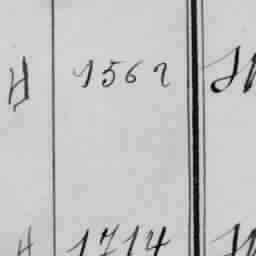 H 1562
H 1714